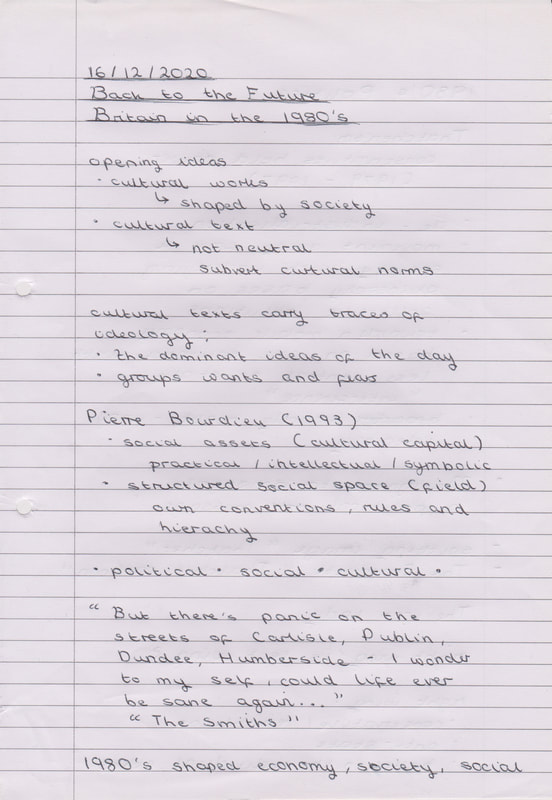 16/12/2020
Back to the Future
Britain in the 1980's
opening ideas
· cultural works
↳ shaped by society
· cultural text
↳ not neutral
subvert curtural norms
cultural texts carry traces of
ideology;
· the dominant ideas of the day
· groups wants and fears
Pierre Bourdieu (1993)
· social assets (cultural capital)
practical / intellectual / symbolic
· structured social space (field)
own conventions, rules and
hierachy
· political · social · cultural ·
“ But there's panic on the
streets of Carlisle, Dublin,
Dundee, Humberside - I wonder
to my self, could life ever
be sane again... ”
“ The Smiths ”
1980's shaped economy, society, social